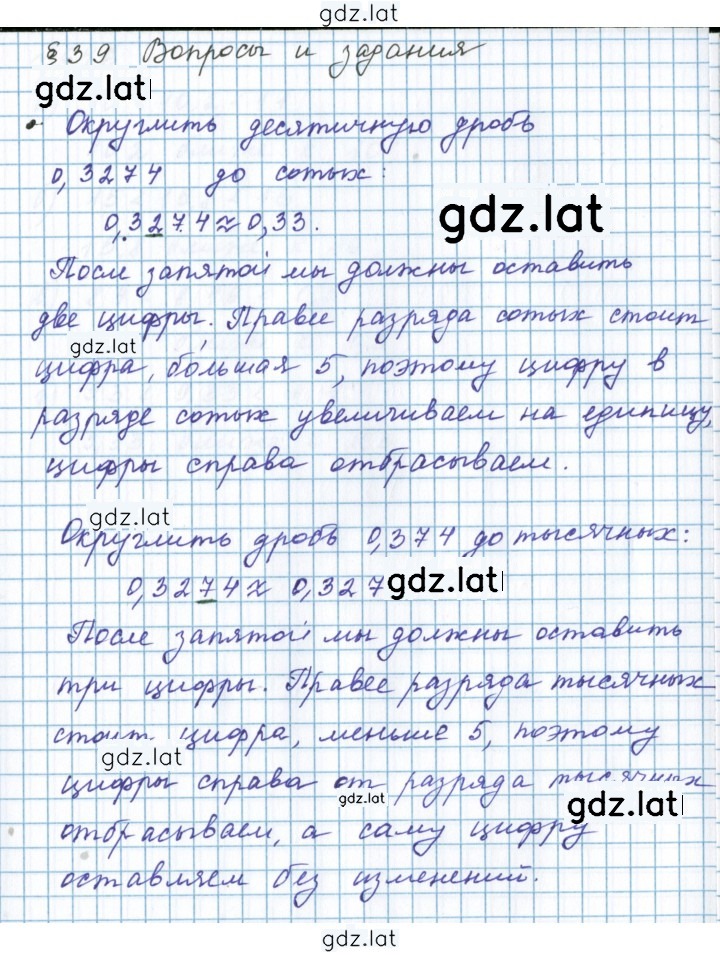 gdz.lat
§ 39 Вопросы и задания
gdz.lat
• Округлить десятичную дробь
0,3274 до сотых:
0,3274 ≈ 0,33.
gdz.lat
После запятой мы должны оставить
две цифры. Правее разряда сотых стоит
gdz.lat
цифра, бо́льшая 5, поэтому цифру в
разряде сотых увеличиваем на единицу,
цифры справа отбрасываем.
gdz.lat
Округлить дробь 0,374 до тысячных:
0,3274 ≈ 0,327
gdz.lat
После запятой мы должны оставить
три цифры. Правее разряда тысячных
стоит цифра, меньше 5, поэтому
gdz.lat
цифры справа от разряда тысячных
gdz.lat
gdz.lat
отбрасываем, а саму цифру
оставляем без изменений.
gdz.lat